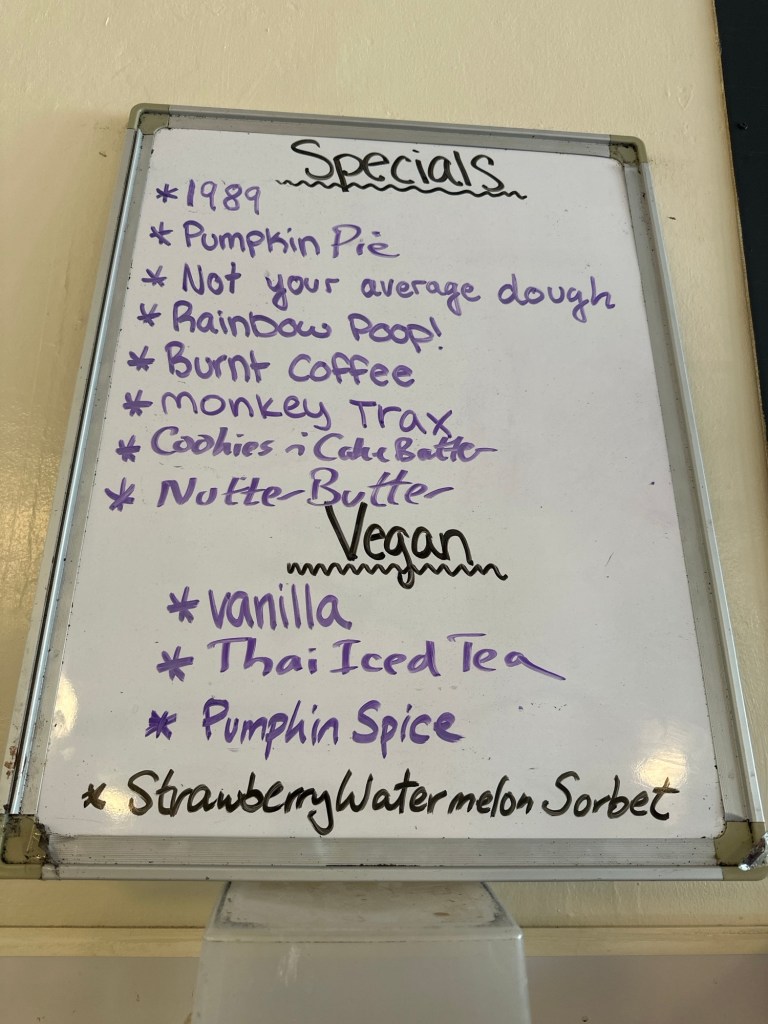 Specials
* 1989
* Pumpkin Pie
* Not your average dough
* Rainbow Poop!
* Burnt Coffee
* Monkey Trax
* Cookies n Cake Batter
* Nutter Butter
Vegan
* Vanilla
* Thai Iced Tea
* Pumpkin Spice
* Strawberry Watermelon Sorbet